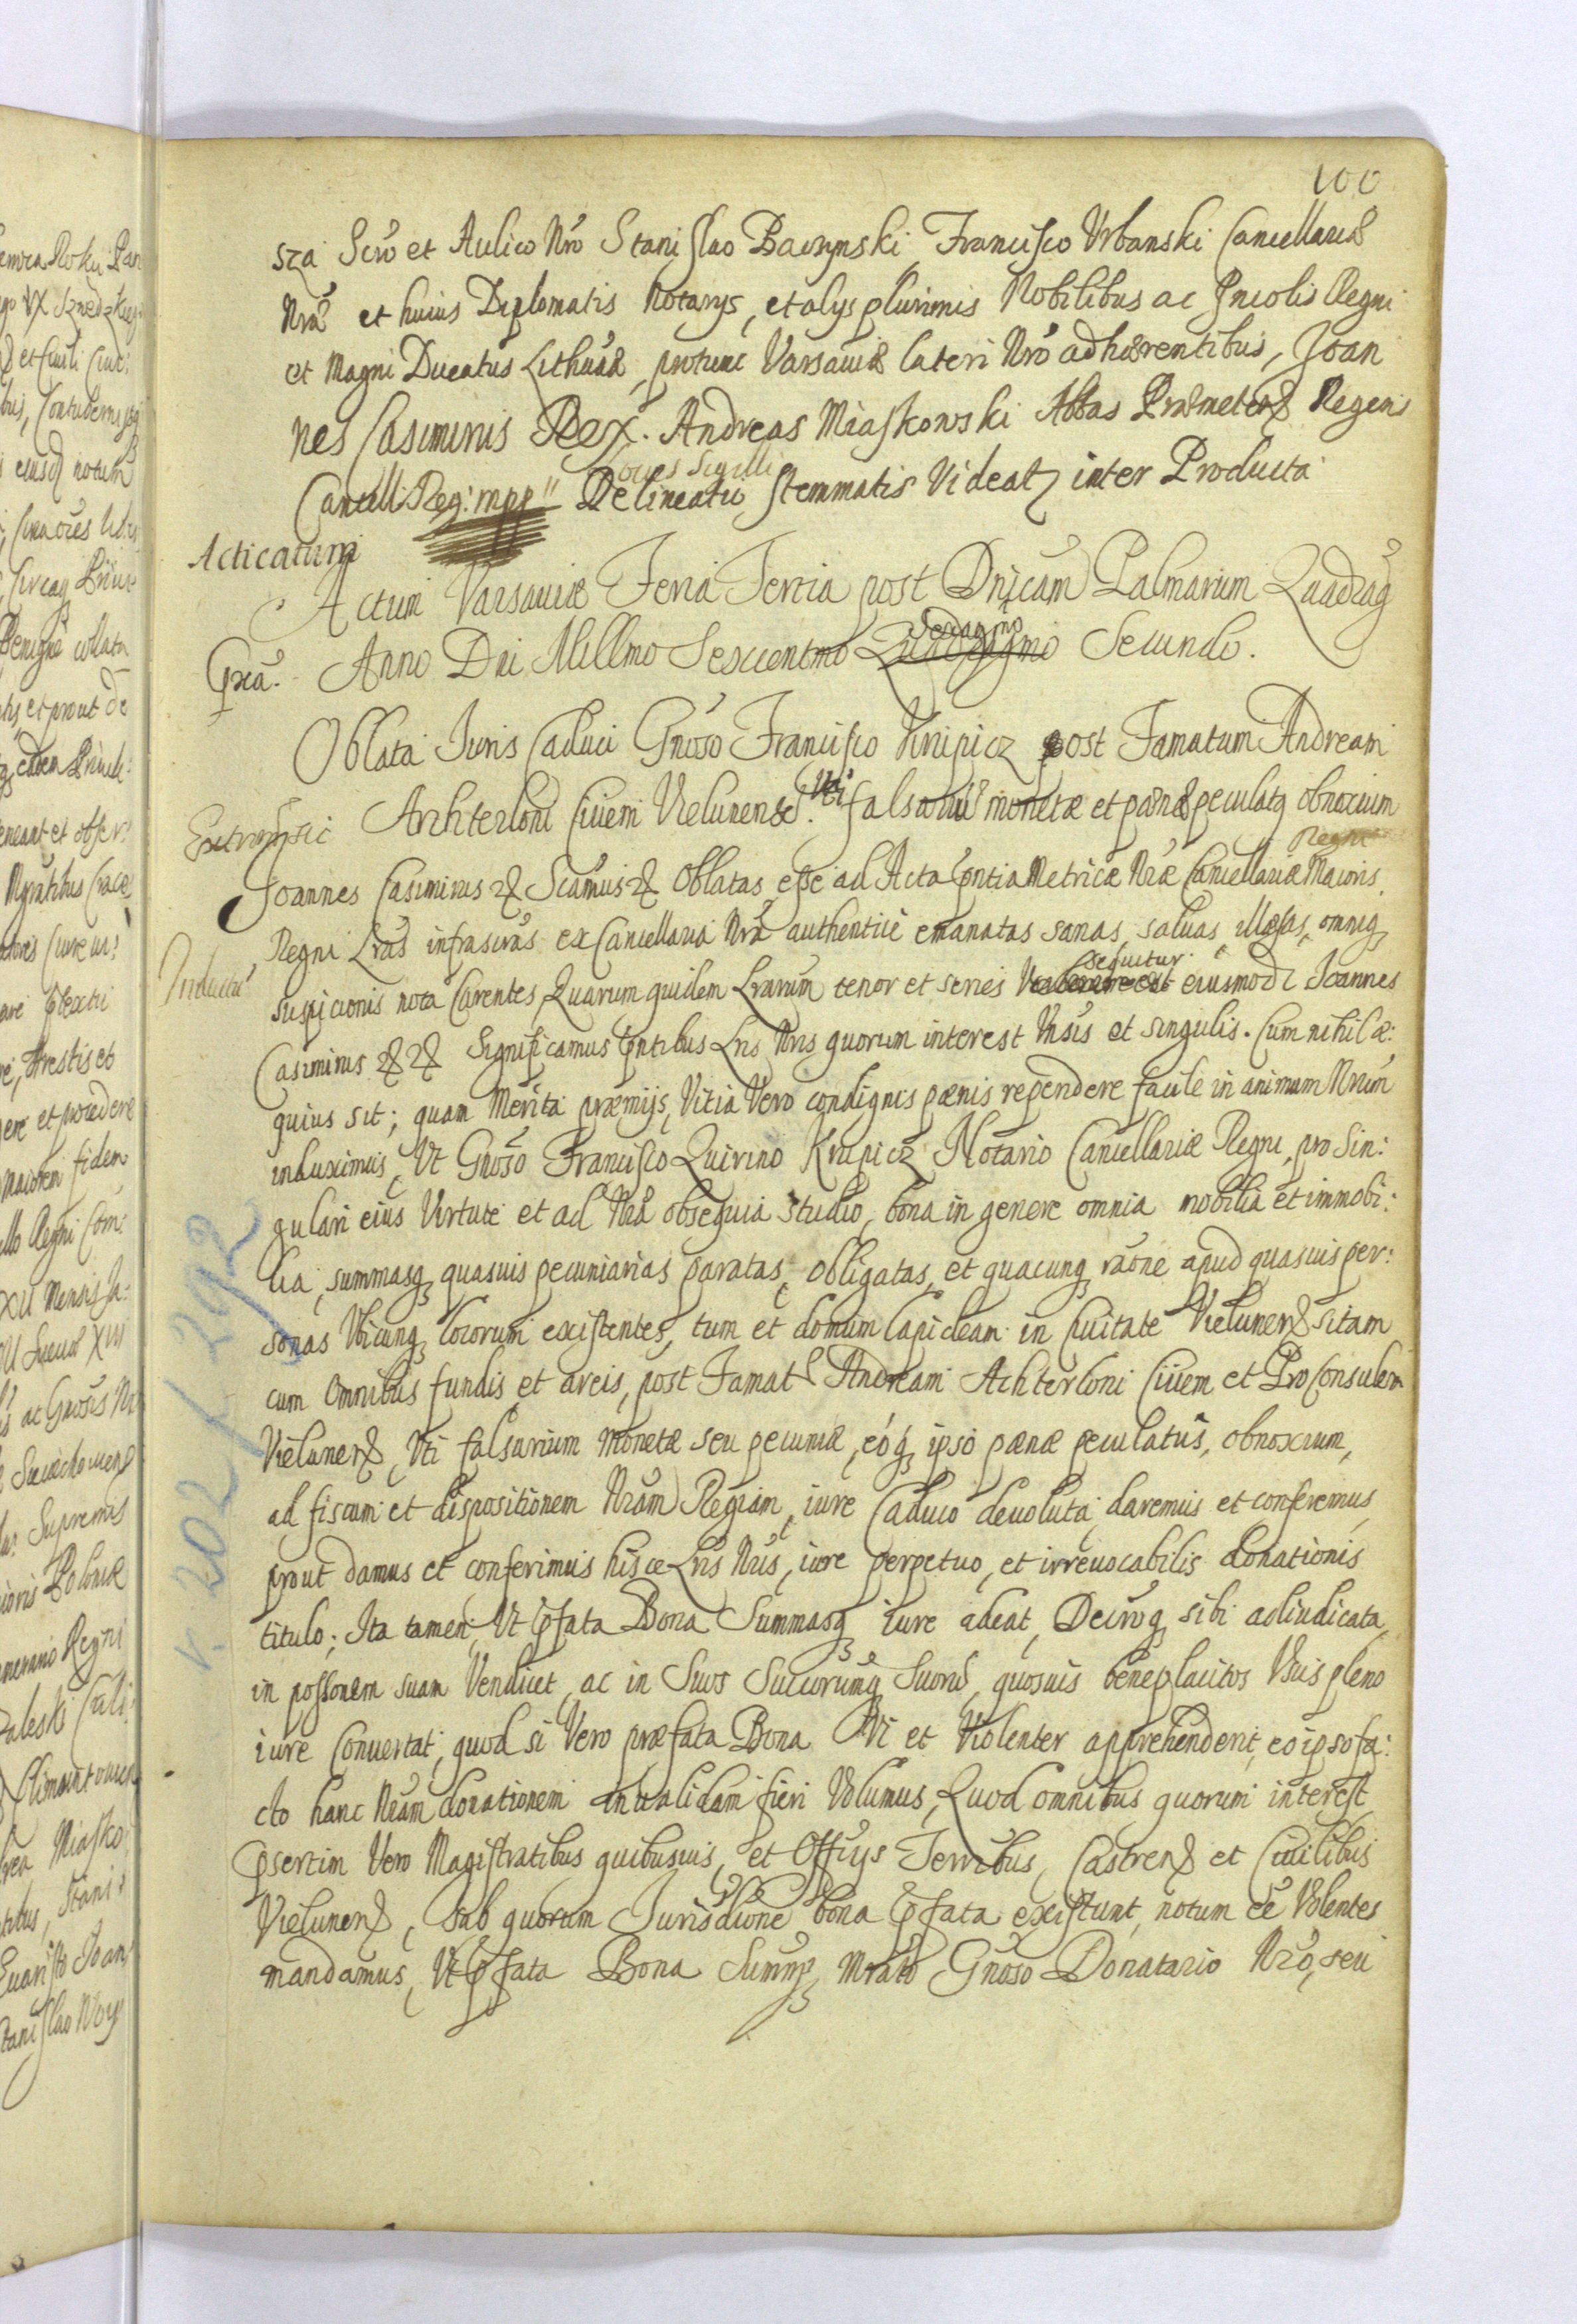 100
sza Scro et Aulico Nro Stanislao Baczynski, Francisco Vrbanski Cancellariæ
Nræ et huius Diplomatis Notarijs, et alijs plurimis Nobilibus ac Incolis Regni
et Magni Ducatus Lithuaæ, protunc Varsauiæ lateri Nro adhærentibus, Joan
nes Casimirus Rex. Andreas Miaskowski Abbas Præmeten Regens
Cancell: Reg: mpp Locus Sigilli
Delineatio stemmatis Videatz inter Producta
Acticatum
Actum Varsauiæ Feria Tertia post Dnicam Palmarum Quadrag
Anno Dni Millmo Sexcentmo Quadragmo Sexagmo Secundo.
Oblata Juris Caduci Gnoso Francisco Krupicz post Famatum Andream
Achterloni Ciuem Vielunense. Vti falsariu monetæ et pænæ peculatq obnoxium
Joannes Casimirus Scamus Oblatas esse ad Acta pntia Metricæ Nræ Cancellariæ Maioris Regni
Regni Lras infrascras ex Cancellaria Nra authentice emanatas sanas, saluas, illæsas, omniq
Inductu
suspicionis nota Carentes, Quarum quidem Lrarum tenor et series sequitur eiusmodi Joannes
Casimirus Significamus pntibus Lris Nris quorum interest Vnsis et singulis. Cum nihil æ:
quius sit; quam Merita præmijs, Vitia Vero condignis pænis rependere facile in animum Nrum
induximus, Vt Gnoso Francisco Quirino Krupicz Notario Cancellariæ Regni, pro Sin:
gulari eius Virtute et ad Nra obsequia studio, bona in genere omnia mobilia et immobi:
lia, summasq quasuis pecuniarias paratas, obligatas, et quacunq raone apud quasuis per:
sonas Vbicunq locorum existentes, tum et domum lapideam in Ciuitate Vielunen sitam
cum Omnibus fundis, et areis, post Famat Andream Achterloni Ciuem et ProConsulem
Vielunen, Vti falsarium Monetæ seu pecuniæ, eoq ipso pænæ peculatus, obnoxium,
ad fiscum et dispositionem Nram Regiam, iure Caduco deuoluta, daremus et conferemus,
prout damus et conferimus hisce Lris Nris, iure perpetuo, et irreuocabilis donationis
titulo; Ita tamen, Vt pfata Bona Summasq iure adeat, Decroq sibi adiudicata,
in possonem suam Vendicet, ac in Suos Succorumq Suoru, quosuis beneplacitos Vsus pleno
iure Conuertat, quod si Vero præfata Bona Vi et Violenter apprehenderit, eo ipso fa:
cto hanc Nram donationem inualidam fieri Volumus, Quod omnibus quorum interest
psertim Vero Magistratibus quibusuis, et Officijs Terribus, Castren et Ciuilibus
Vielunen, sub quorum Jurisdione bona pfata existunt, notum eê Volentes
mandamus, Vt pfata Bona Summasq Mrato Gnoso Donatario Nro, seu
k. 202 / 292